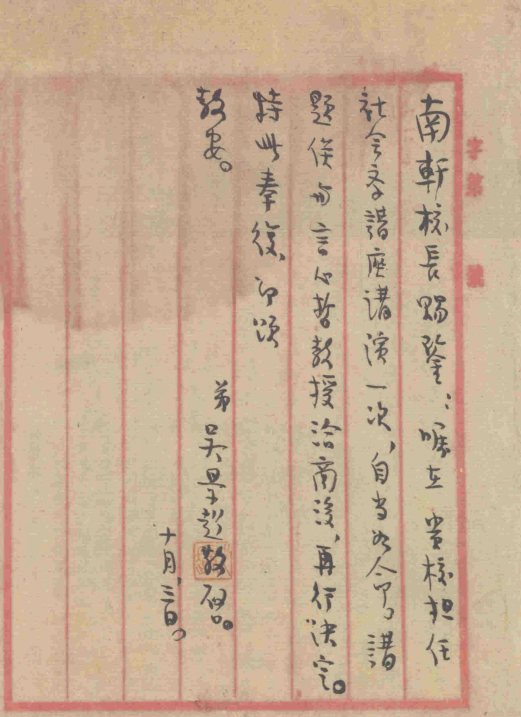 字第 號
南軒校長賜鑒：囑在 貴校担任
社会学講座講演一次，自当如命。講
題俟与言心哲教授洽商後，再行決定。
特此奉復，即頌
教安。
弟 吳景超敬啓。
十月，三日。